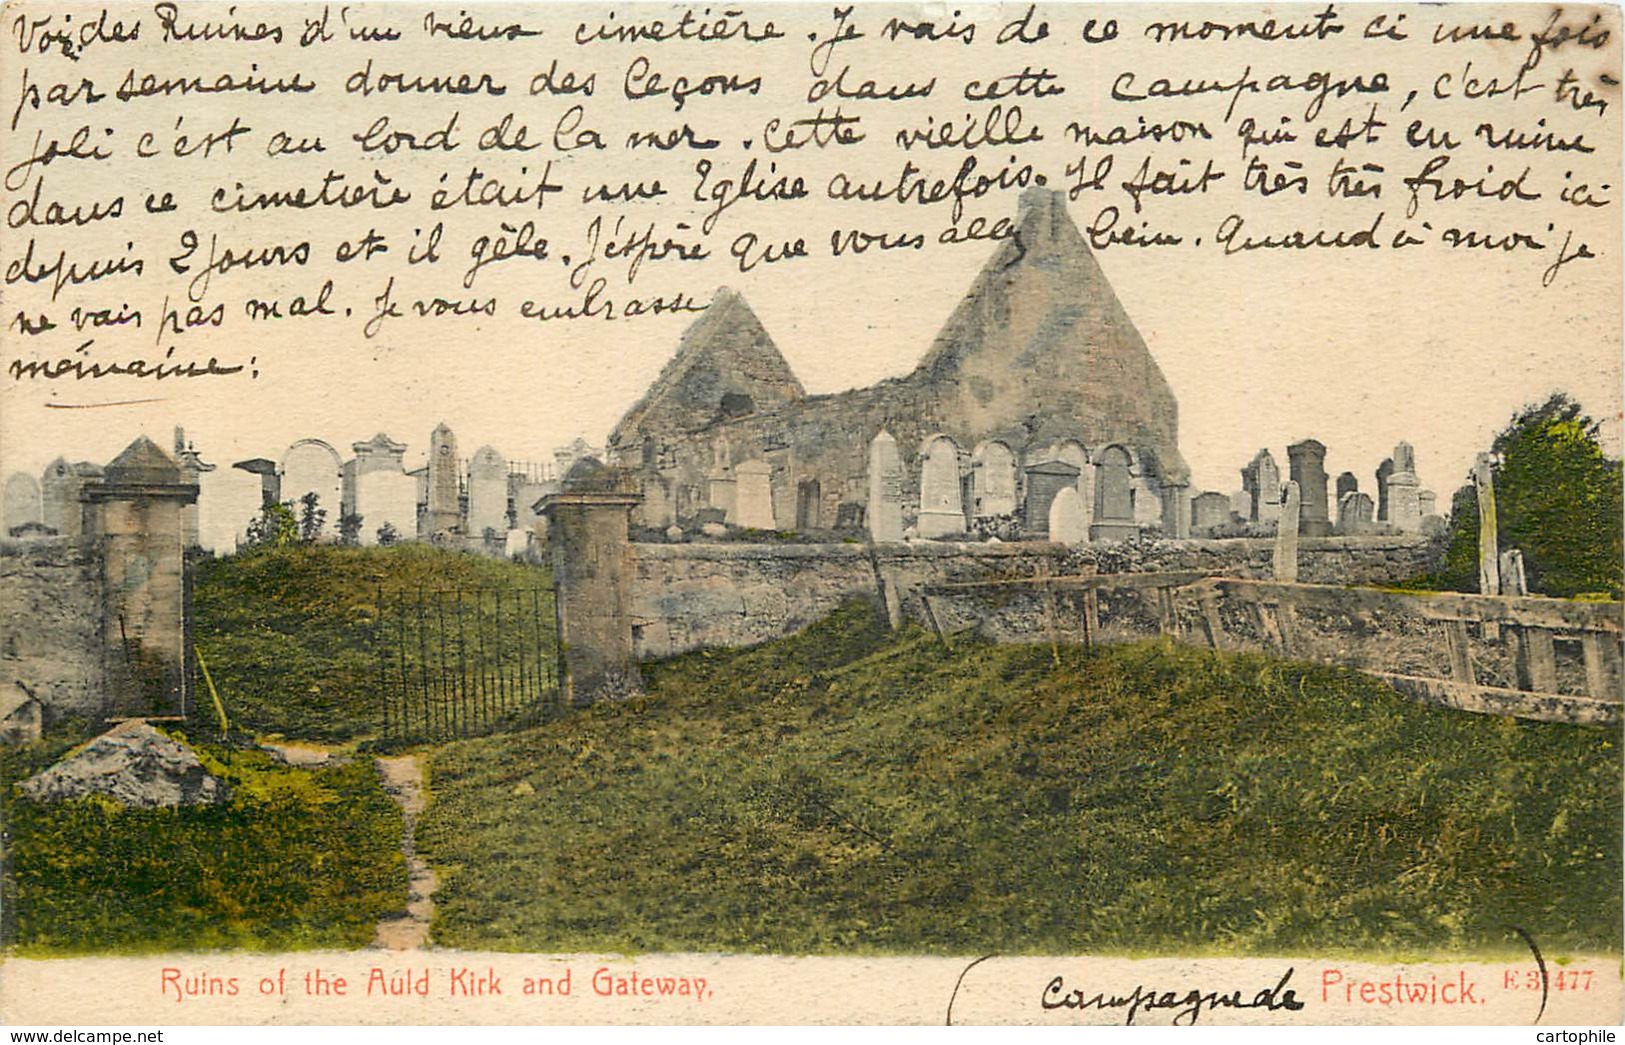 Voici des Ruines d'un vieux cimetière. Je vais de ce moment ci une fois
par semaine donner des leçons dans cette campagne, c'est très
joli c'est au bord de la mer. Cette vieille maison qui est en ruine
dans ce cimetière était une Eglise autrefois. Il fait très très froid ici
depuis 2 jours et il gèle. J'éspère que vous allez bein. Quand à moi je
ne vais pas mal. Je vous embrasse
Ruins of the Auld Kirk and Gateway.
(Campagne de Prestwick. E 31477)
cartophile